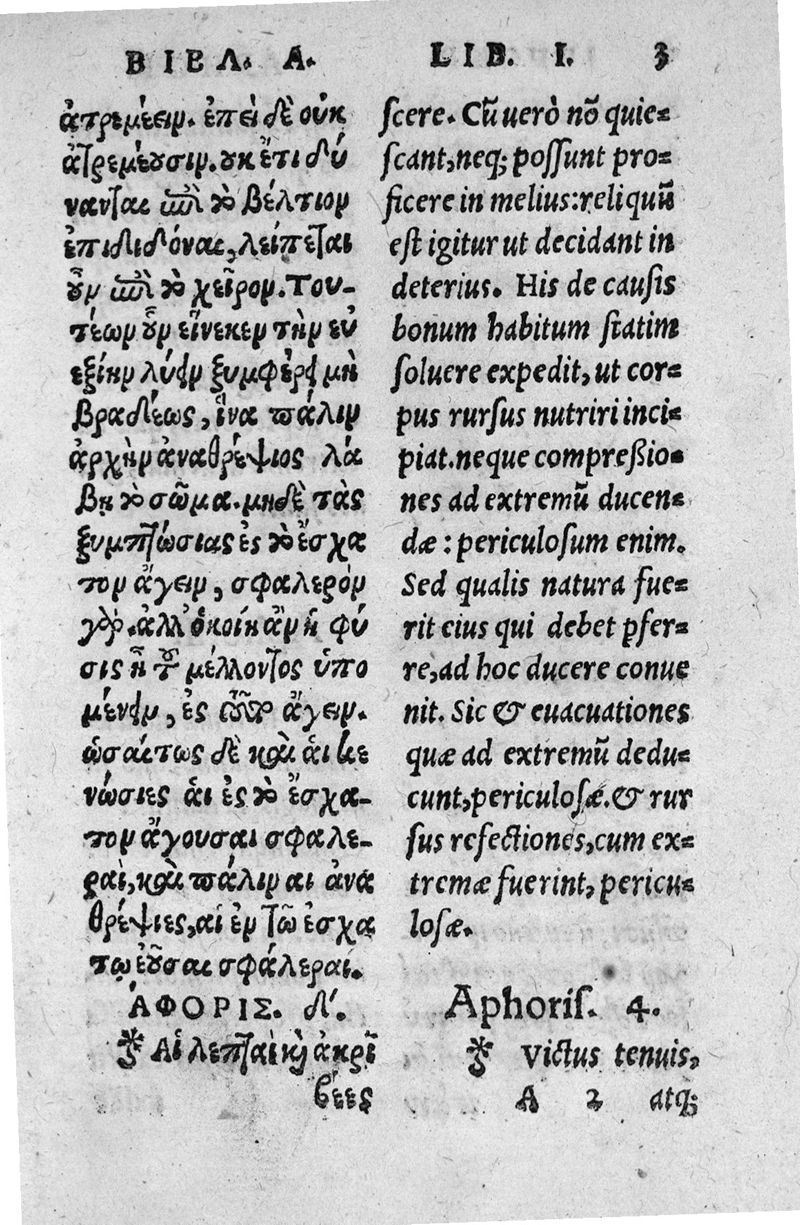 ΒΙΒΛ. Α.
ἀτρεμέειν. ἐπεὶ δὲ οὐκ
ἀτρεμέουσιν. οὐκ ἔτι δύ
νανται ἐπὶ τὸ βέλτιον
ἐπιδιδόναι, λείπεται
οὖν ἐπὶ τὸ χεῖρον. Του-
τέων οὖν εἵνεκεν τὴν εὐ
εξίην λύειν ξυμφέρει μὴ
βραδέως, ἵνα πάλιν
ἀρχὴν ἀναθρέψιος λά
βῃ τὸ σῶμα. μηδὲ τὰς
ξυμπτώσιας ἐς τὸ ἔσχα
τον ἄγειν, σφαλερὸν
γὰρ. ἀλλ' ὁκοίη ἂν ἡ φύ
σις ᾖ τοῦ μέλλοντος ὑπο
μένειν, ἐς τοῦτο ἄγειν.
ὡσαύτως δὲ καὶ ἁι κε
νώσιες ἁι ἐς τὸ ἔσχα-
τον ἄγουσαι σφαλε-
ραὶ, καὶ πάλιν αι ἀνα
θρέψιες, αἱ ἐν τῶ ἐσχα
τῳ ἐοῦσαι σφάλεραί.
ἈΦΟΡΙΣ. δ'.
Αἱ λεπταὶ κ̀ ἀκρι
βέες
LIB. I. 3
scere. Cũ uerò nõ quie=
scant, neq; possunt pro=
ficere in melius: reliquũ
est igitur ut decidant in
deterius. His de causis
bonum habitum statim
soluere expedit, ut cor=
pus rursus nutriri inci=
piat. neque compreßio=
nes ad extremũ ducen=
dæ: periculosum enim.
Sed qualis natura fue=
rit eius qui debet pfer=
re, ad hoc ducere conue
nit. Sic & euacuationes
quæ ad extremũ dedu=
cunt, periculosæ. & rur
sus refectiones, cum ex=
tremæ fuerint, pericu=
losæ.
Aphoris. 4.
Victus tenuis,
A 2 atq;